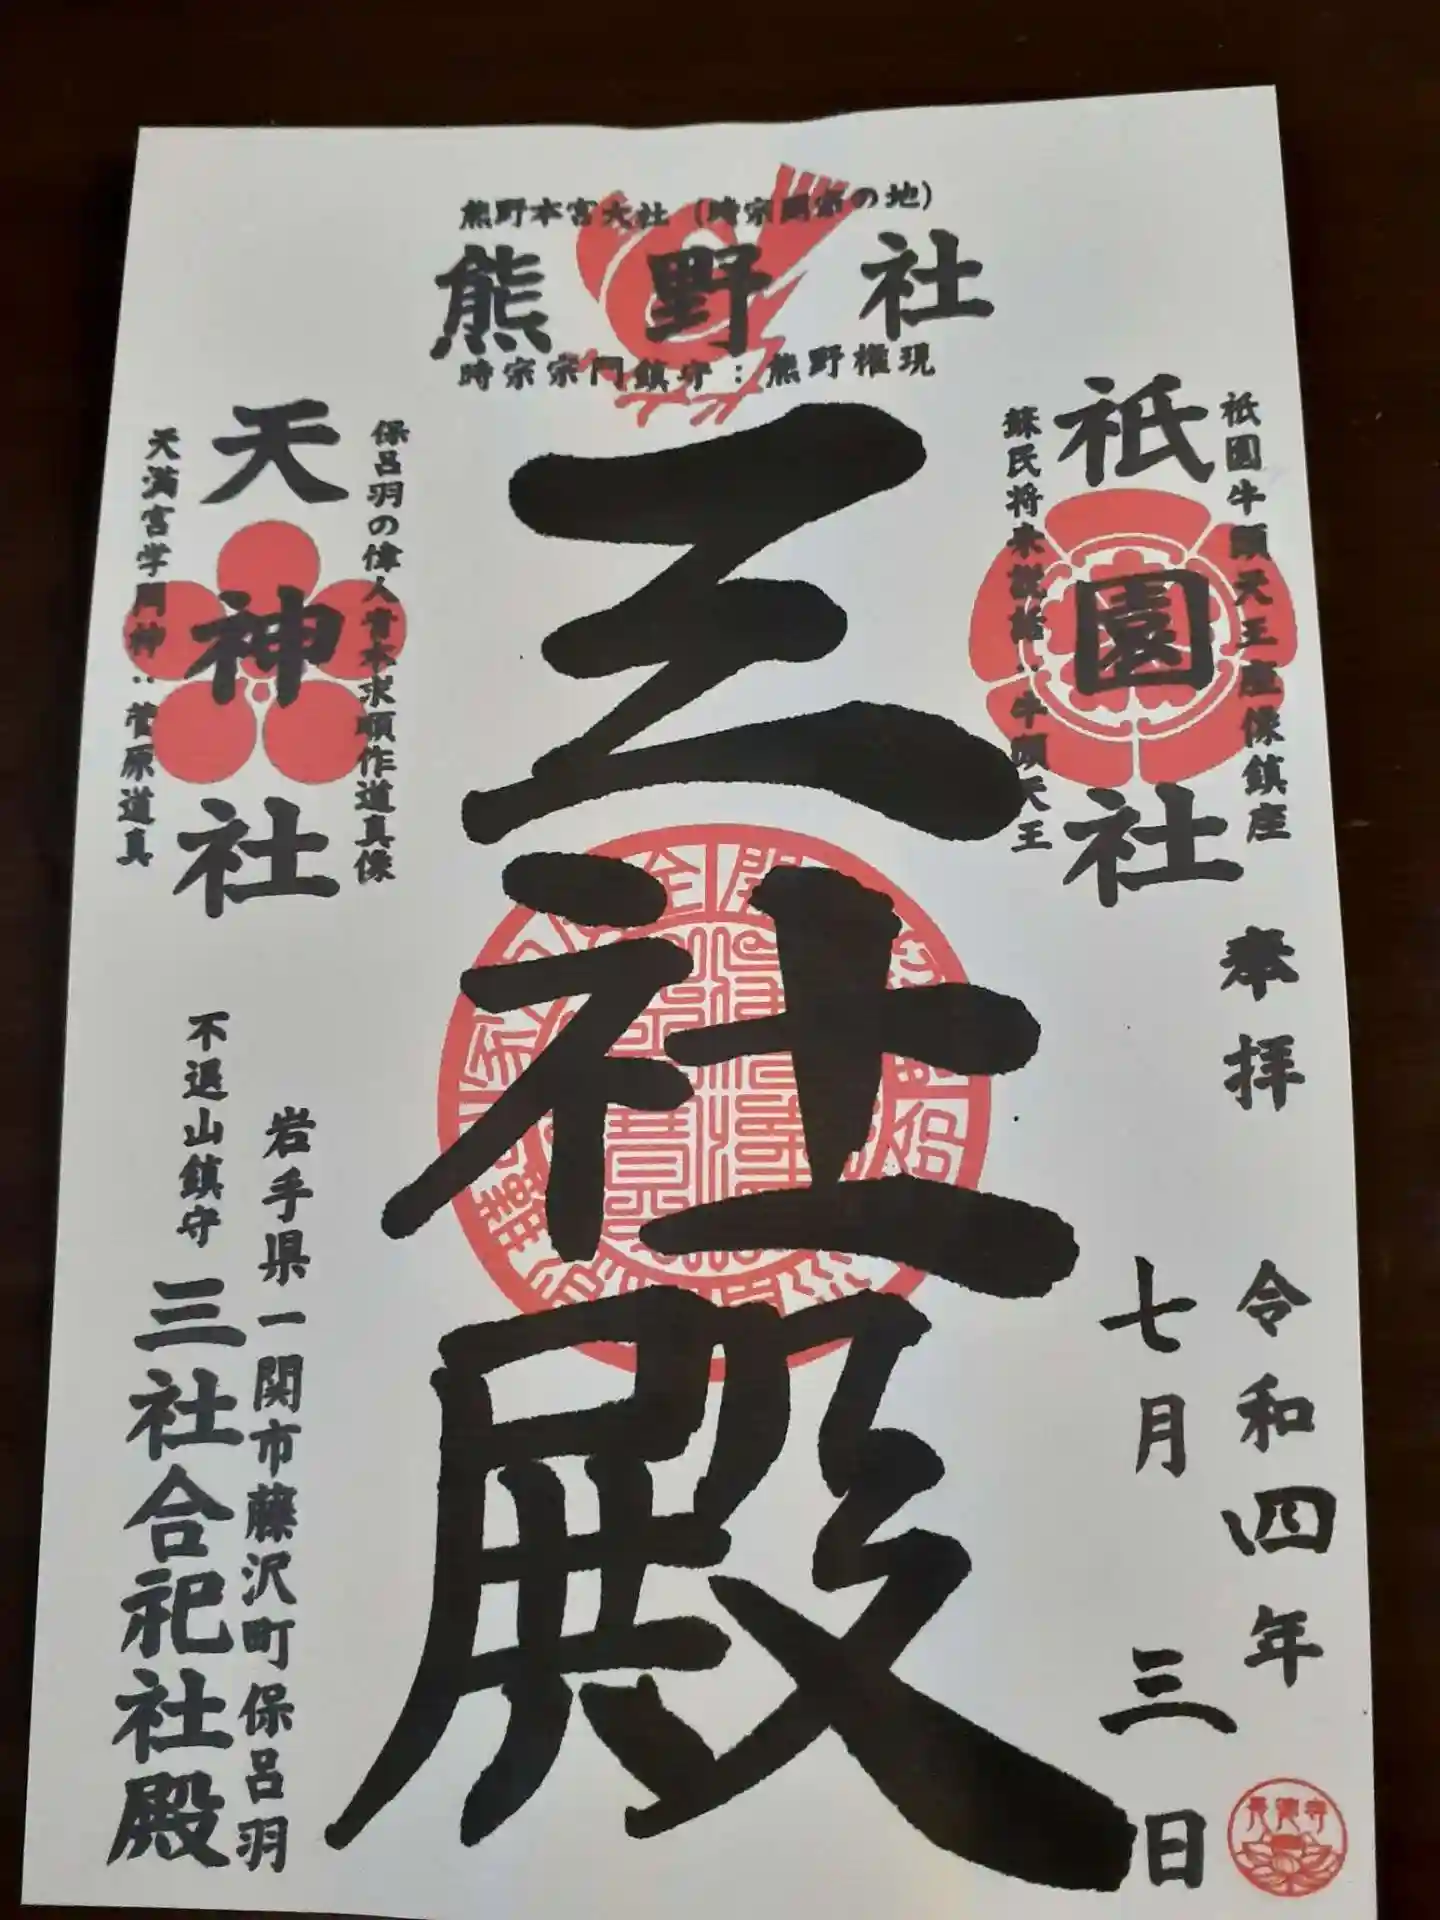 熊野本宮大社（時宗開宗の地）
熊野社
時宗宗門鎮守：熊野権現
祇園牛頭天王座像鎮座
祇園社
蘇民将来説話：牛頭天王
保呂羽の偉人青木求順作道真像
天神社
天満宮学問神：菅原道真
三社殿
奉拝
令和四年
七月三日
岩手県一関市藤沢町保呂羽
不退山鎮守三社合祀社殿
長徳寺